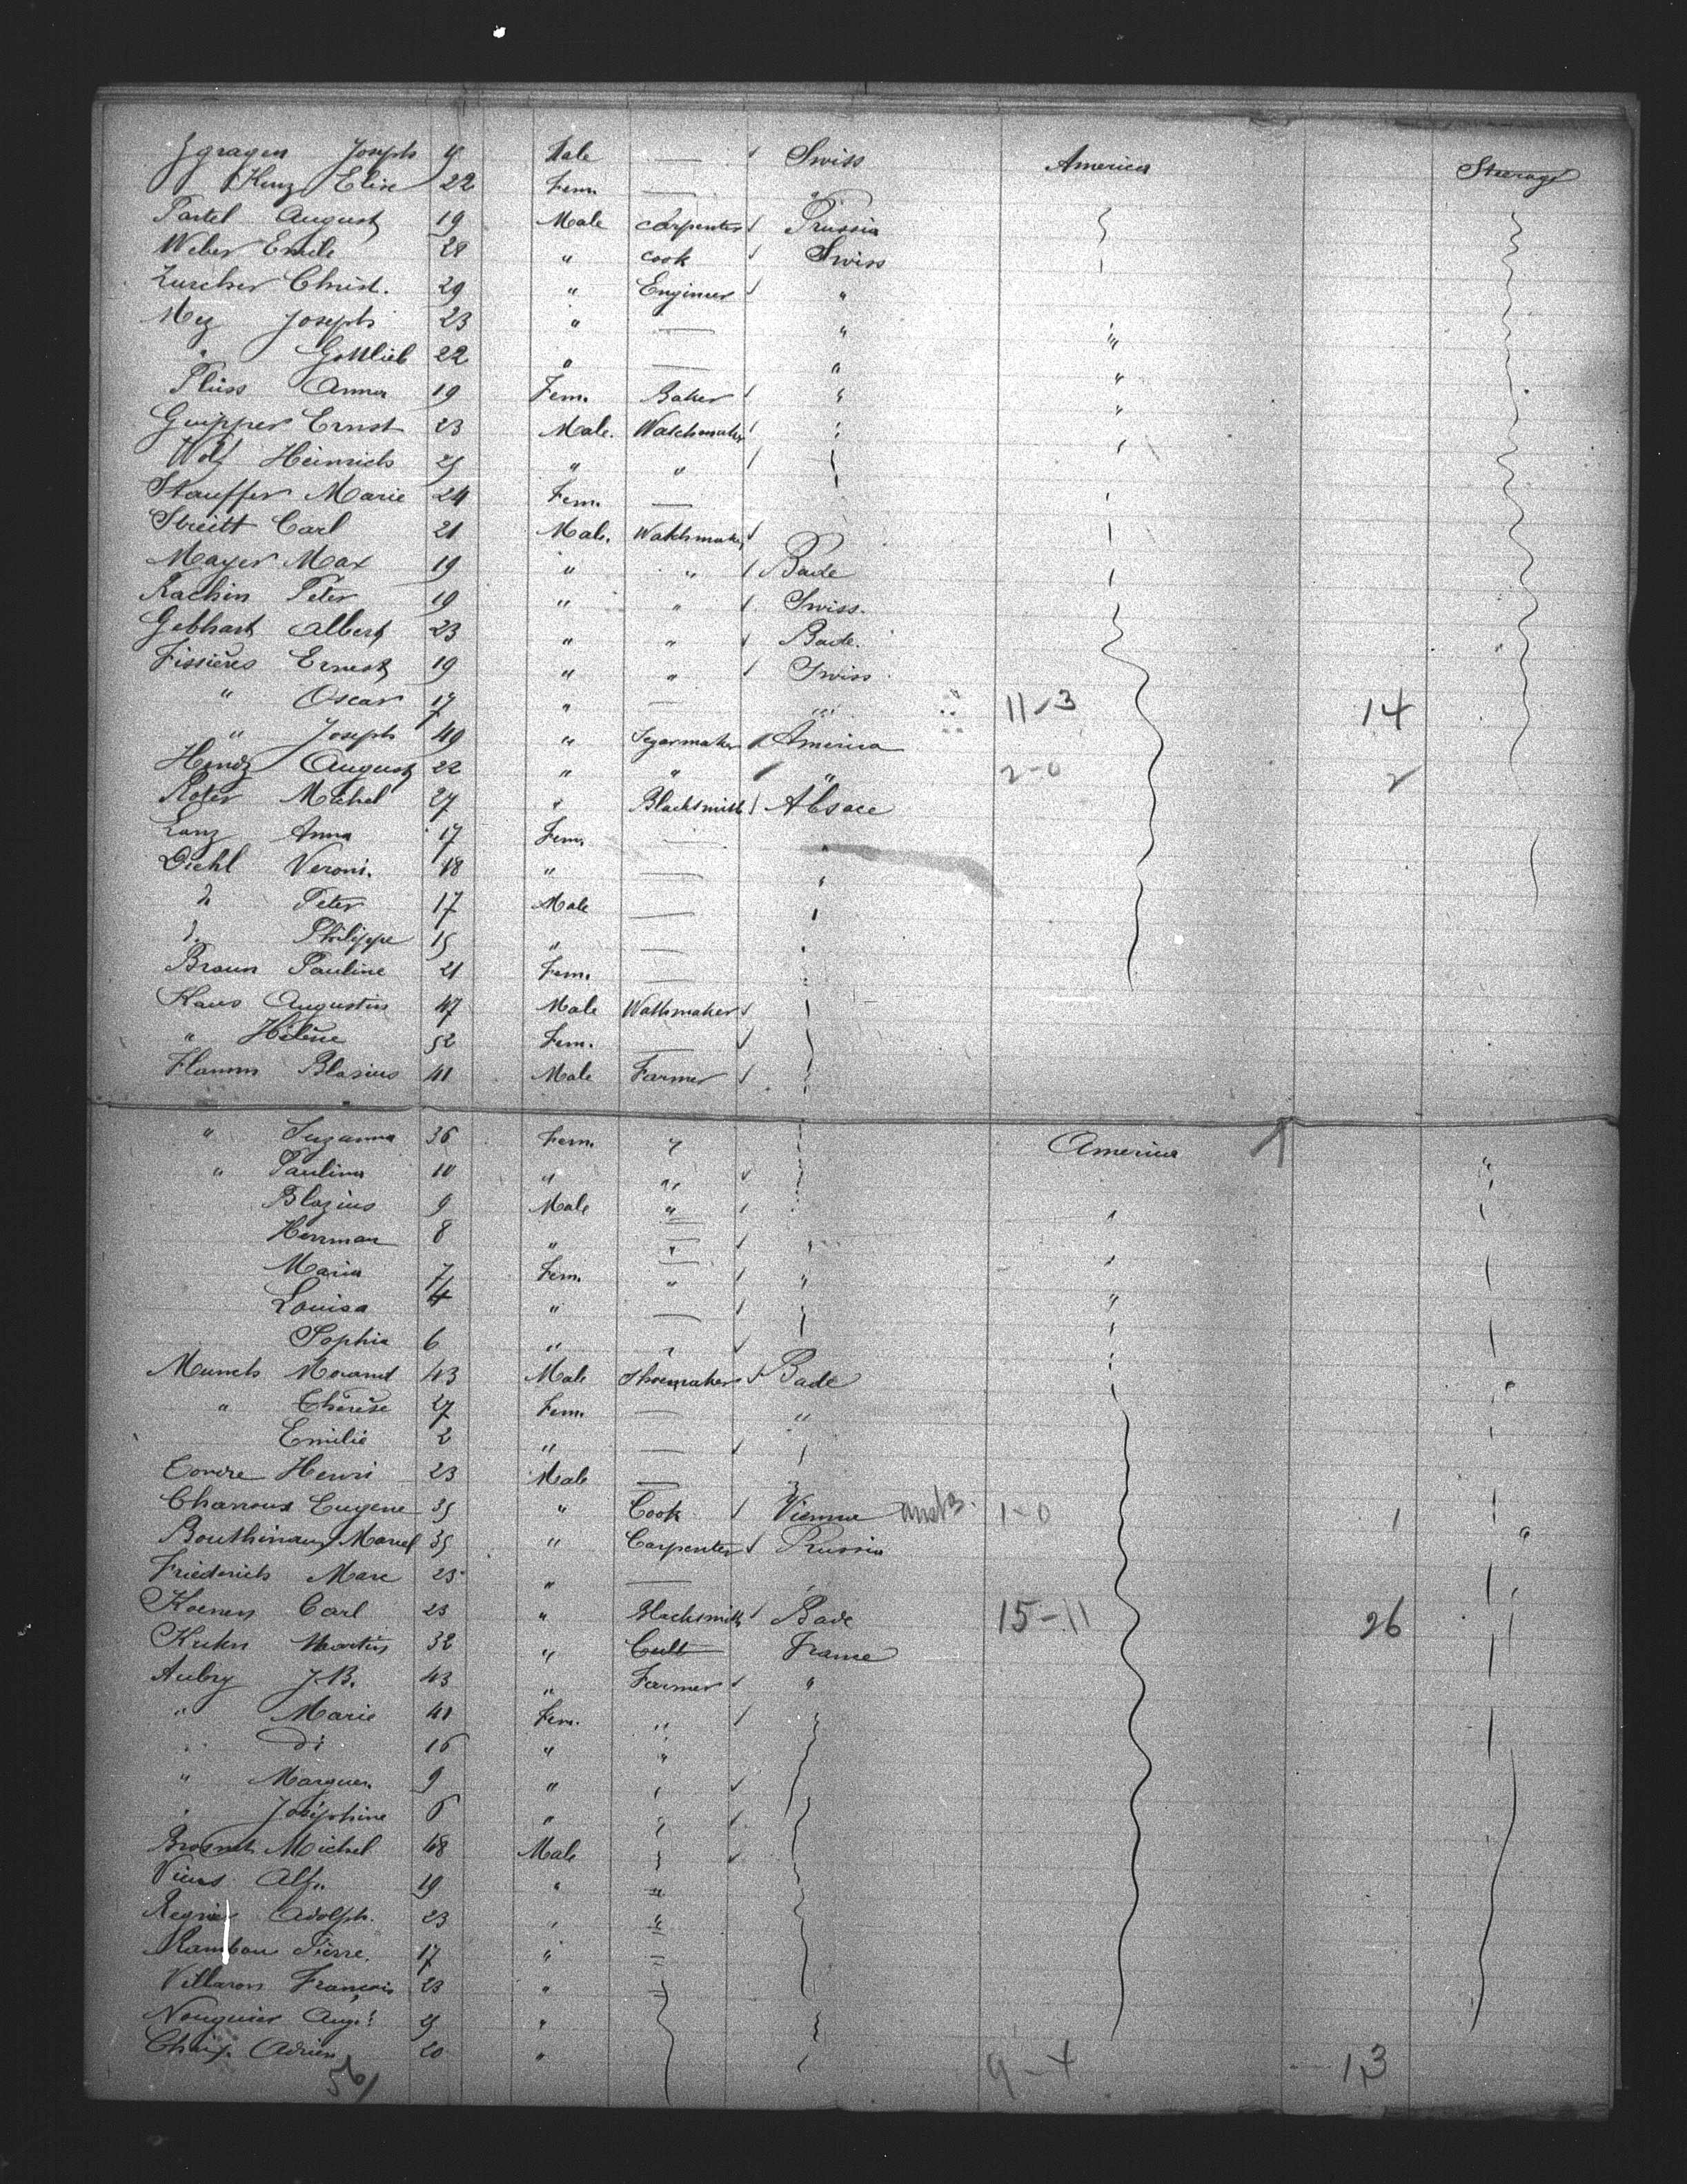 Zgragen Joseph 19 Male — Swiss America Steerage
Kunz Elise 22 Fem. — "
Partel August 19 Male Carpenter Prussia
Weber Emile 28 " Cook Swiss
Zurcher Christ. 29 " Engineer "
Mey Joseph 23 " — " "
" Gottlieb 22 " — " "
Pluss Anna 19 Fem. Baker " "
Guipper Ernst 23 Male. Watchmaker
Wolf Heinrich 25 " "
Stauffer Marie 24 Fem. —
Streitt Carl 21 Male. Watchmaker
Mayer Max 19 " " Bade
Rachin Peter 19 " " Swiss.
Gebhart Albert 23 " " Bade.
Fissières Ernest 19 " " Swiss
" Oscar 17 " — " 11-3 14
" Joseph 49 " Segarmaker America
Hendz August 22 " " " 2-0 2
Roter Michel 27 " Blacksmith Alsace
Lanz Anna 17 Fem. — "
Diehl Veroni. 18 " — "
" Peter 17 Male —
" Philippe 15 " —
Braun Pauline 21 Fem. —
Kaus Augustus 47 Male Wathmaker
" Hélène 52 Fem. —
Flamm Blasius 41 Male Farmer
" Suzanna 36 Fem. " America "
" Paulina 10 " "
Blazius 9 Male "
Herrman 8 " "
Maria 7 Fem. " "
Louisa 4 " — "
Sophia 6 " "
Munch Morand 43 Male Shoemaker Bade
" Thérèse 27 Fem. — "
Emilie 2 " —
Henri 23 Male —
Eugene 35 " Cook Vienna 1-0 1
35 " Carpenter Prussia "
Friederich Marc 25 " —
Koenen Carl 23 " Blacksmith Bade 15-11 26
Kuhn Martin 32 " Cult France
Aubry J.B. 43 " Farmer "
" Marie 41 Fem. "
" di 16 " "
" Marguer. 9 "
" Joséphine 6 "
Michel 48 Male
Alf. 19 " "
Regnier Adolph. 23 " "
Rambau Pierre. 17 "
Villaron François 23 "
Nouguier Aug. 25 "
Adrien 20 " 9-4 13
56/